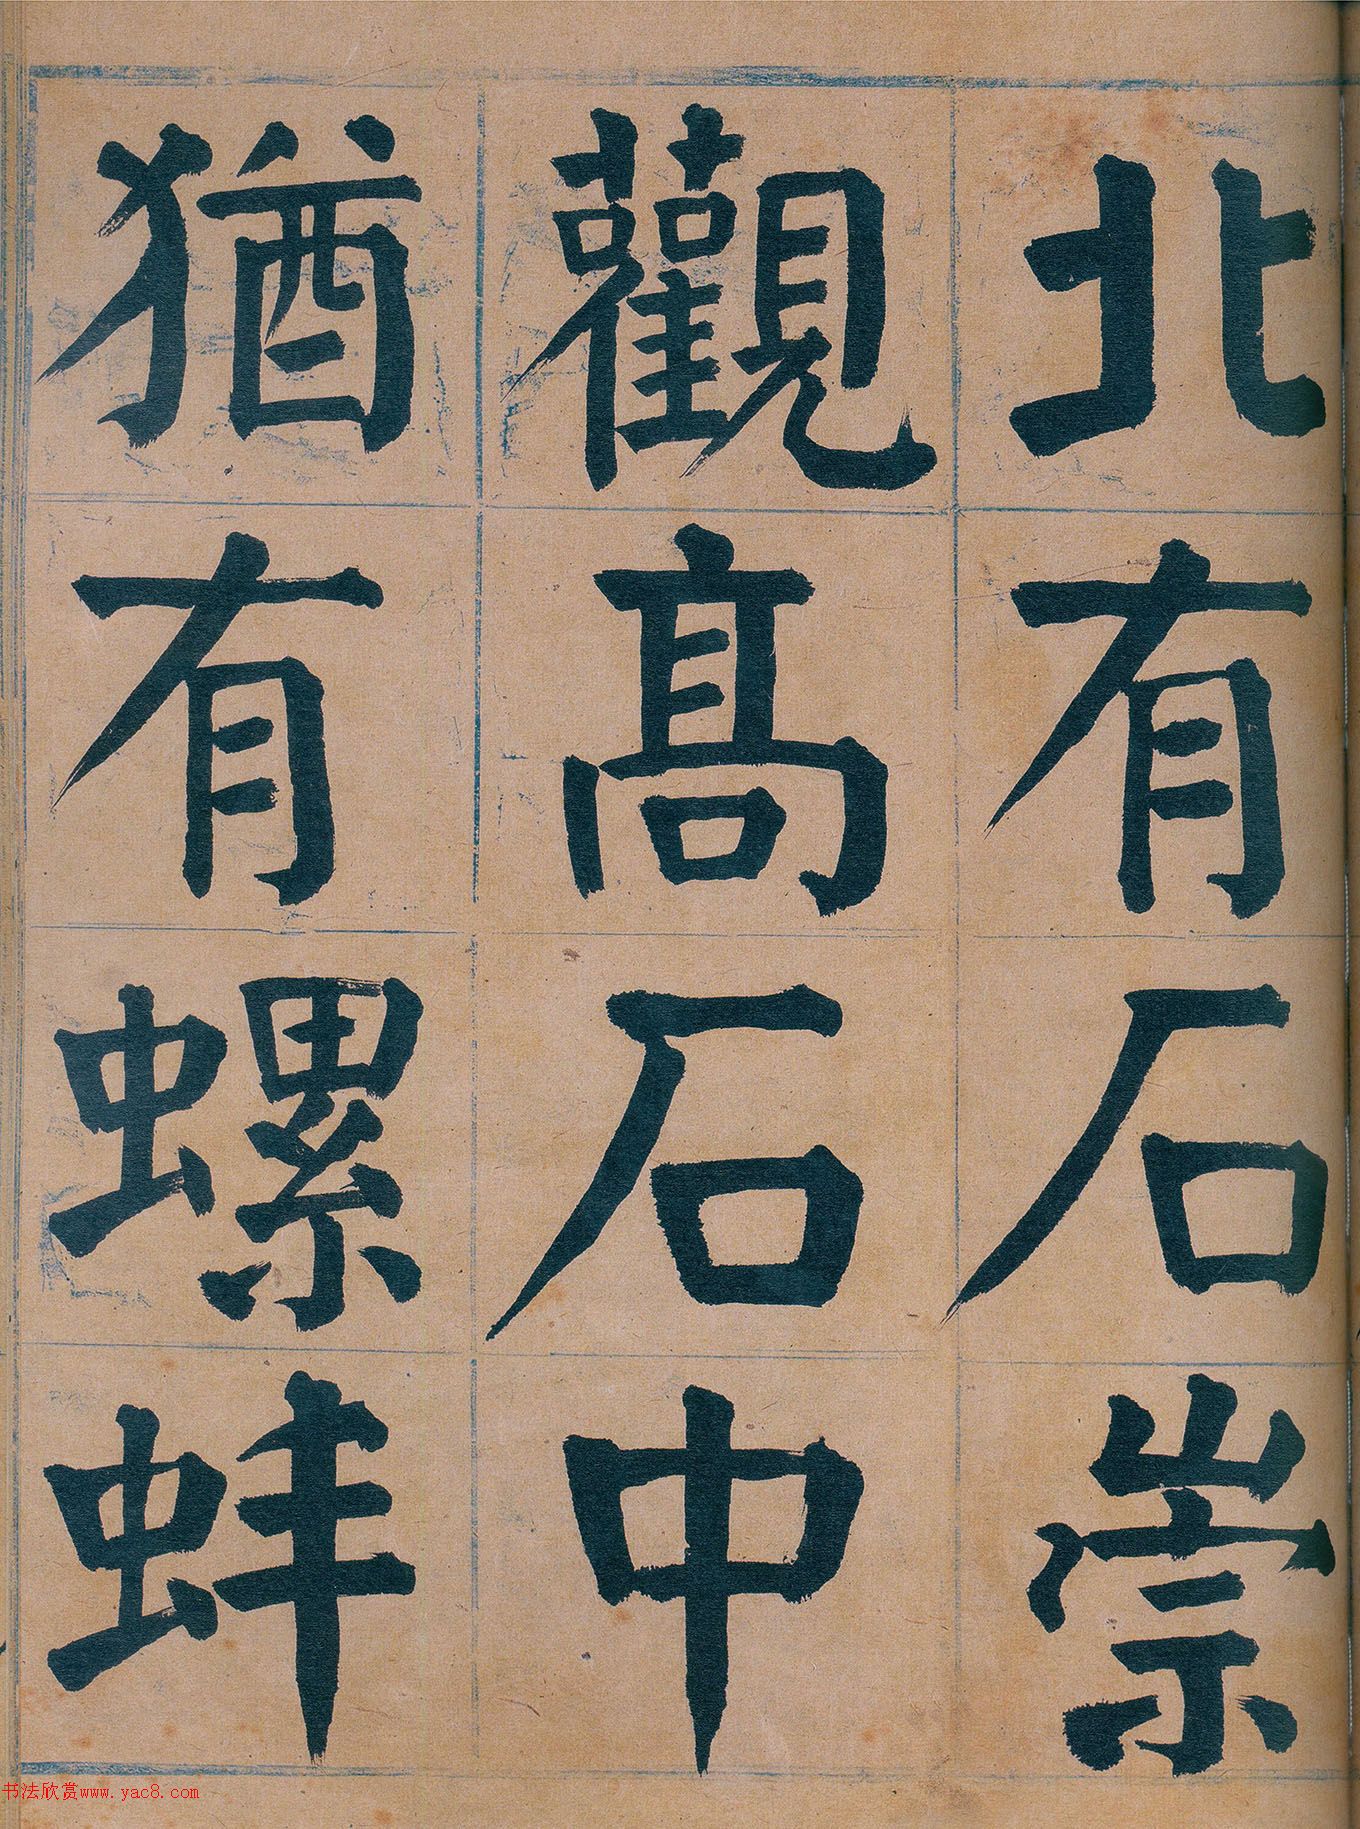 北有石崇
觀高石中
猶有螺蚌
书法欣赏www.yac8.com